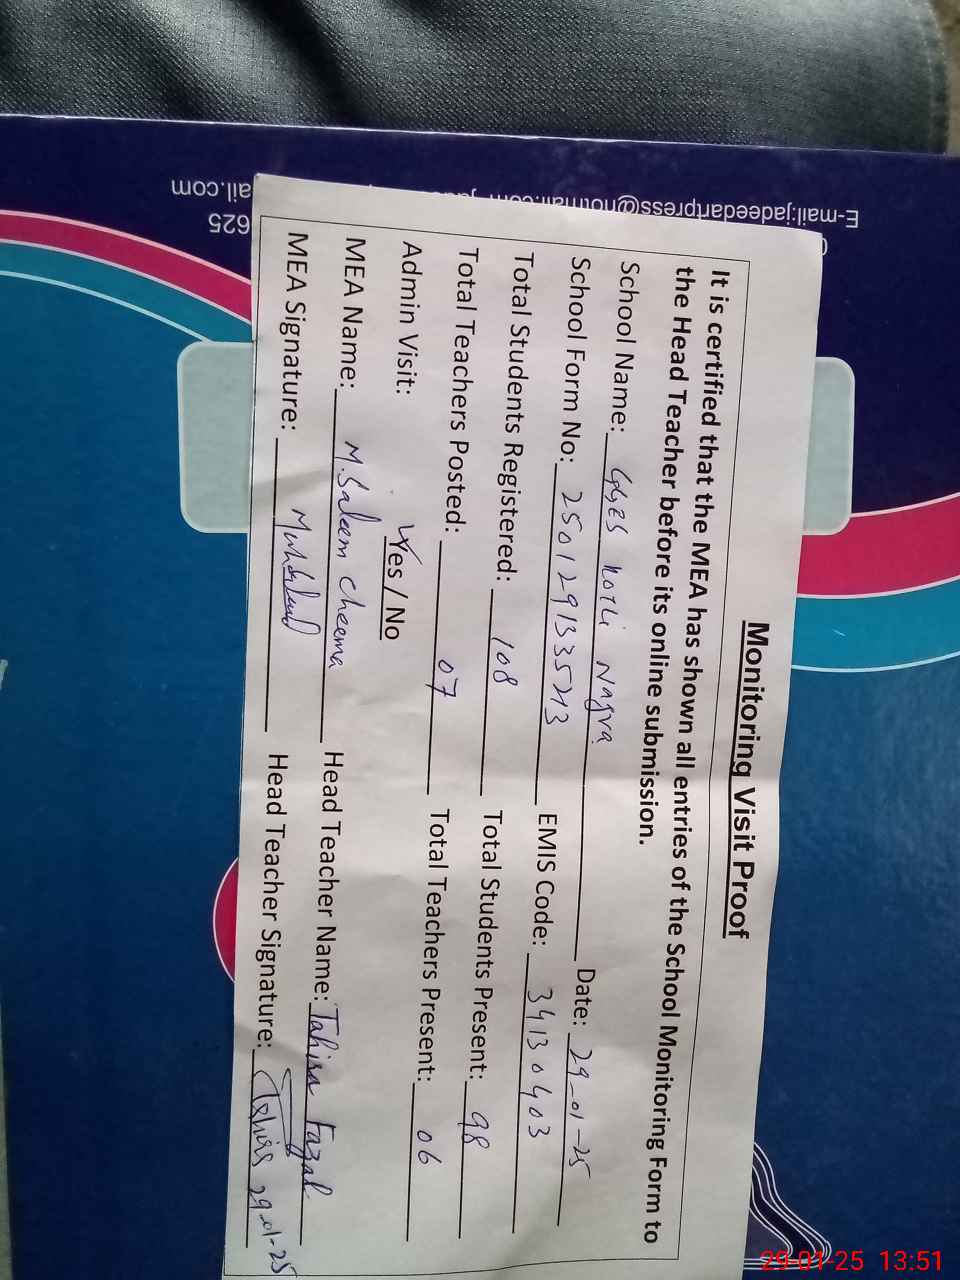 Monitoring Visit Proof
It is certified that the MEA has shown all entries of the School Monitoring Form to
the Head Teacher before its online submission.
School Name: GGES Kotli Nagra Date: 29-01-25
School Form No: EMIS Code: 34130403
Total Students Registered: 108 Total Students Present: 98
Total Teachers Posted: 07 Total Teachers Present: 06
Admin Visit: Yes / No
MEA Name: M. Saleem Cheema Head Teacher Name: Tahira Fazal
MEA Signature: Head Teacher Signature: Tahira 29-01-25
E-mail:jadeedartpress@hotmail.com
ail.com
625
29-01-25 13:51